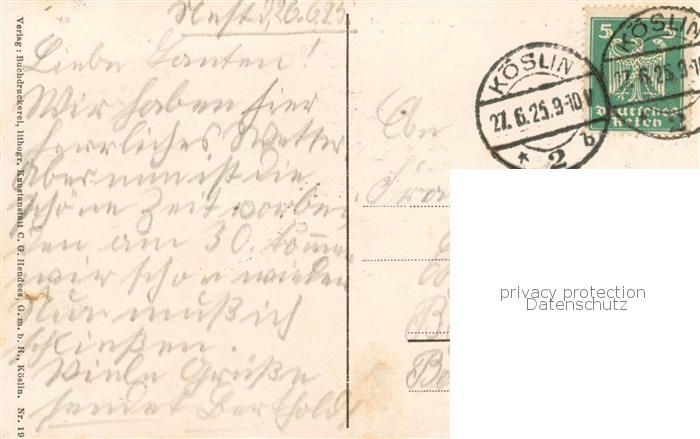 Nest d, 26.6.25
Liebe Tanten!
Wir haben hier
herrliches Wetter
Aber nun ist die
schöne Zeit vorbei,
den am 30. kommen
wir schon wieder
Nun muß ich
schließen.
Viele Grüße
sendet Berthold
An
Verlag: Buchdruckerei, lithogr. Kunstanstalt C. G. Hendess, G. m. b. H., Köslin. Nr. 19
KÖSLIN
27.6.25.9-10V
* 2 b
5 5
Deutsches
Reich
KÖSLIN
27.6.25.9-10
2
privacy protection
Datenschutz